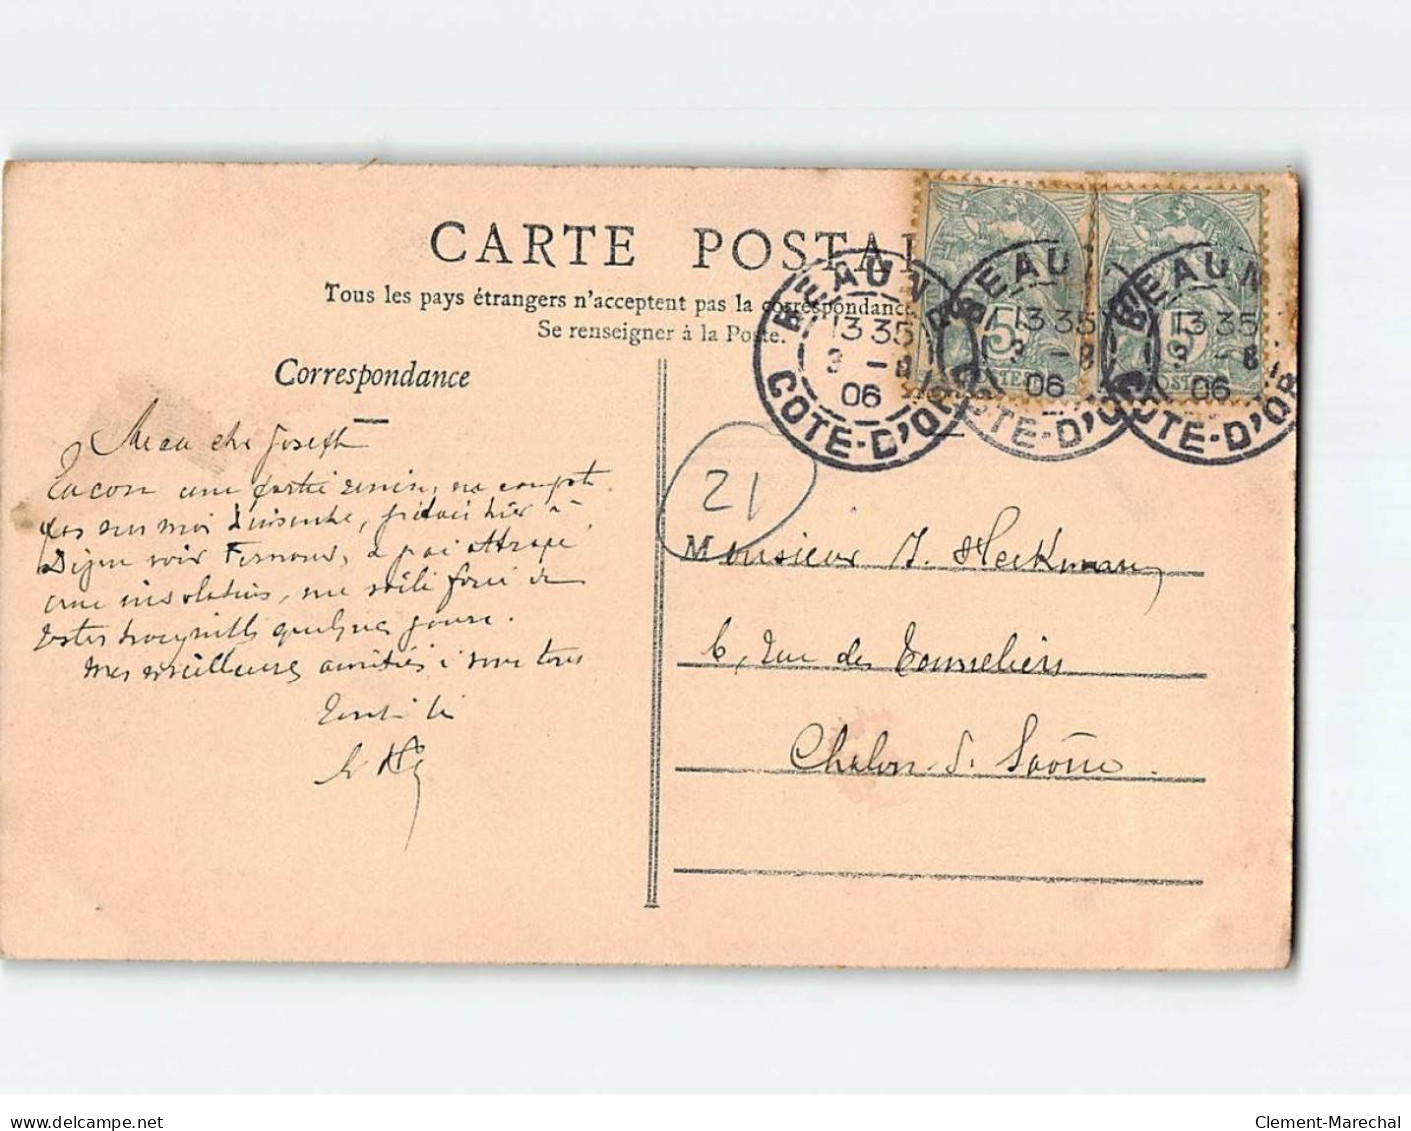 CARTE POSTAL
Tous les pays étrangers n'acceptent pas la correspondance
Se renseigner à la Poste.
Correspondance
BEAUN
13 35
3 - 8
06
COTE-D'OR
BEAUN
13 35
3 - 8
06
COTE-D'OR
BEAUN
13 35
3 - 8
06
COTE-D'OR
5
5
POSTES
21
Mon cher Joseph
Encore une partie remise, ne compte
pas sur moi dimanche, j'étais hier à
Dijon voir Fernand, j'ai attrapé
une insolation, me voilà forcé de
rester tranquille quelques jours.
Mes meilleures amitiés à vous tous
Monsieur J. Heckmann
6, Rue des Tonneliers
Chalon s. Saône.
delcampe.net
Clement-Marechal